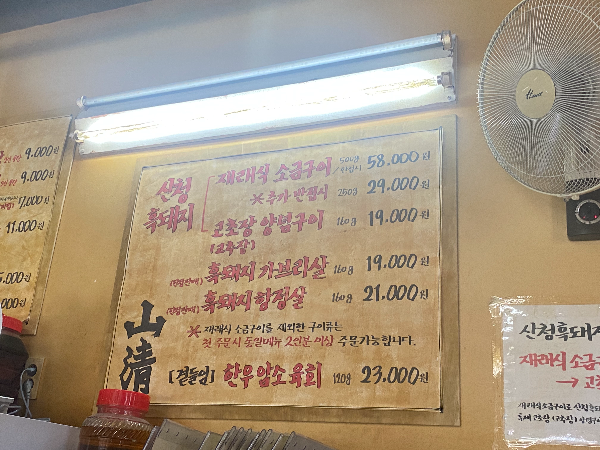 9.000원
9.000원
7.000원
11.000원
산청
흑돼지
재래식 소금구이 500g 58.000원
※ 추가 반접시 250g 29.000원
고추장 양념구이 160g 19.000원
(고추장)
흑돼지 가브리살 160g 19.000원
흑돼지 항정살 160g 21.000원
山清
※ 재래식 소금구이를 제외한 구이류는
첫 주문시 동일메뉴 2인분 이상 주문가능합니다.
[곁들임] 한우암소육회 120g 23.000원
산청흑돼지
재래식 소금구